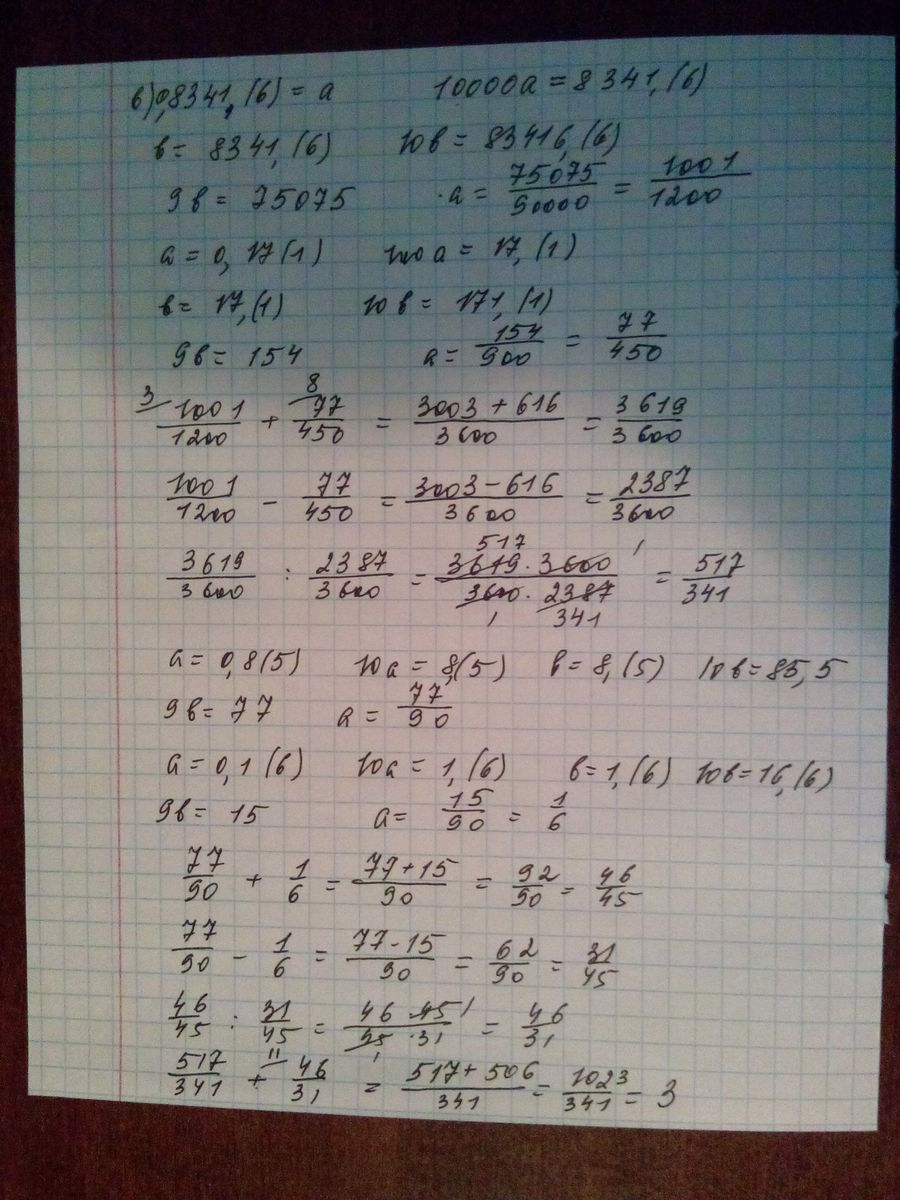 в) 0,8341,(6) = a    10000a = 8341,(6)
в = 8341,(6)    10в = 83416,(6)
9в = 75075    a = 75075/90000 = 1001/1200
a = 0,17(1)    100a = 17,(1)
в = 17,(1)    10в = 171,(1)
9в = 154    a = 154/900 = 77/450
3 1001/1200 + 8 77/450 = 3003 + 616/3600 = 3619/3600
1001/1200 - 77/450 = 3003 - 616/3600 = 2387/3600
3619/3600 : 2387/3600 = 517 3619 · 3600 1/1 3600 · 2387 341 = 517/341
a = 0,8(5)    10a = 8,(5)    в = 8,(5)    10в = 85,5
9в = 77    a = 77/90
a = 0,1(6)    10a = 1,(6)    в = 1,(6)    10в = 16,(6)
9в = 15    a = 15/90 = 1/6
77/90 + 1/6 = 77 + 15/90 = 92/90 = 46/45
77/90 - 1/6 = 77 - 15/90 = 62/90 = 31/45
46/45 : 31/45 = 46 · 45 1/45 · 31 1 = 46/31
517/341 + 11 46/31 = 517 + 506/341 = 1023/341 = 3